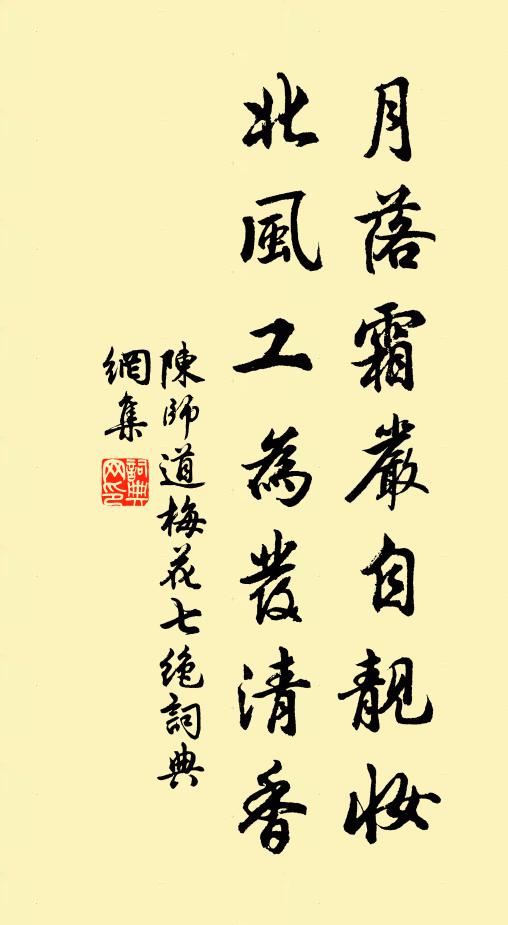 月落霜嚴自靚妝
北風工為發清香
陳師道梅花七絕詞典
網集
詞典網印